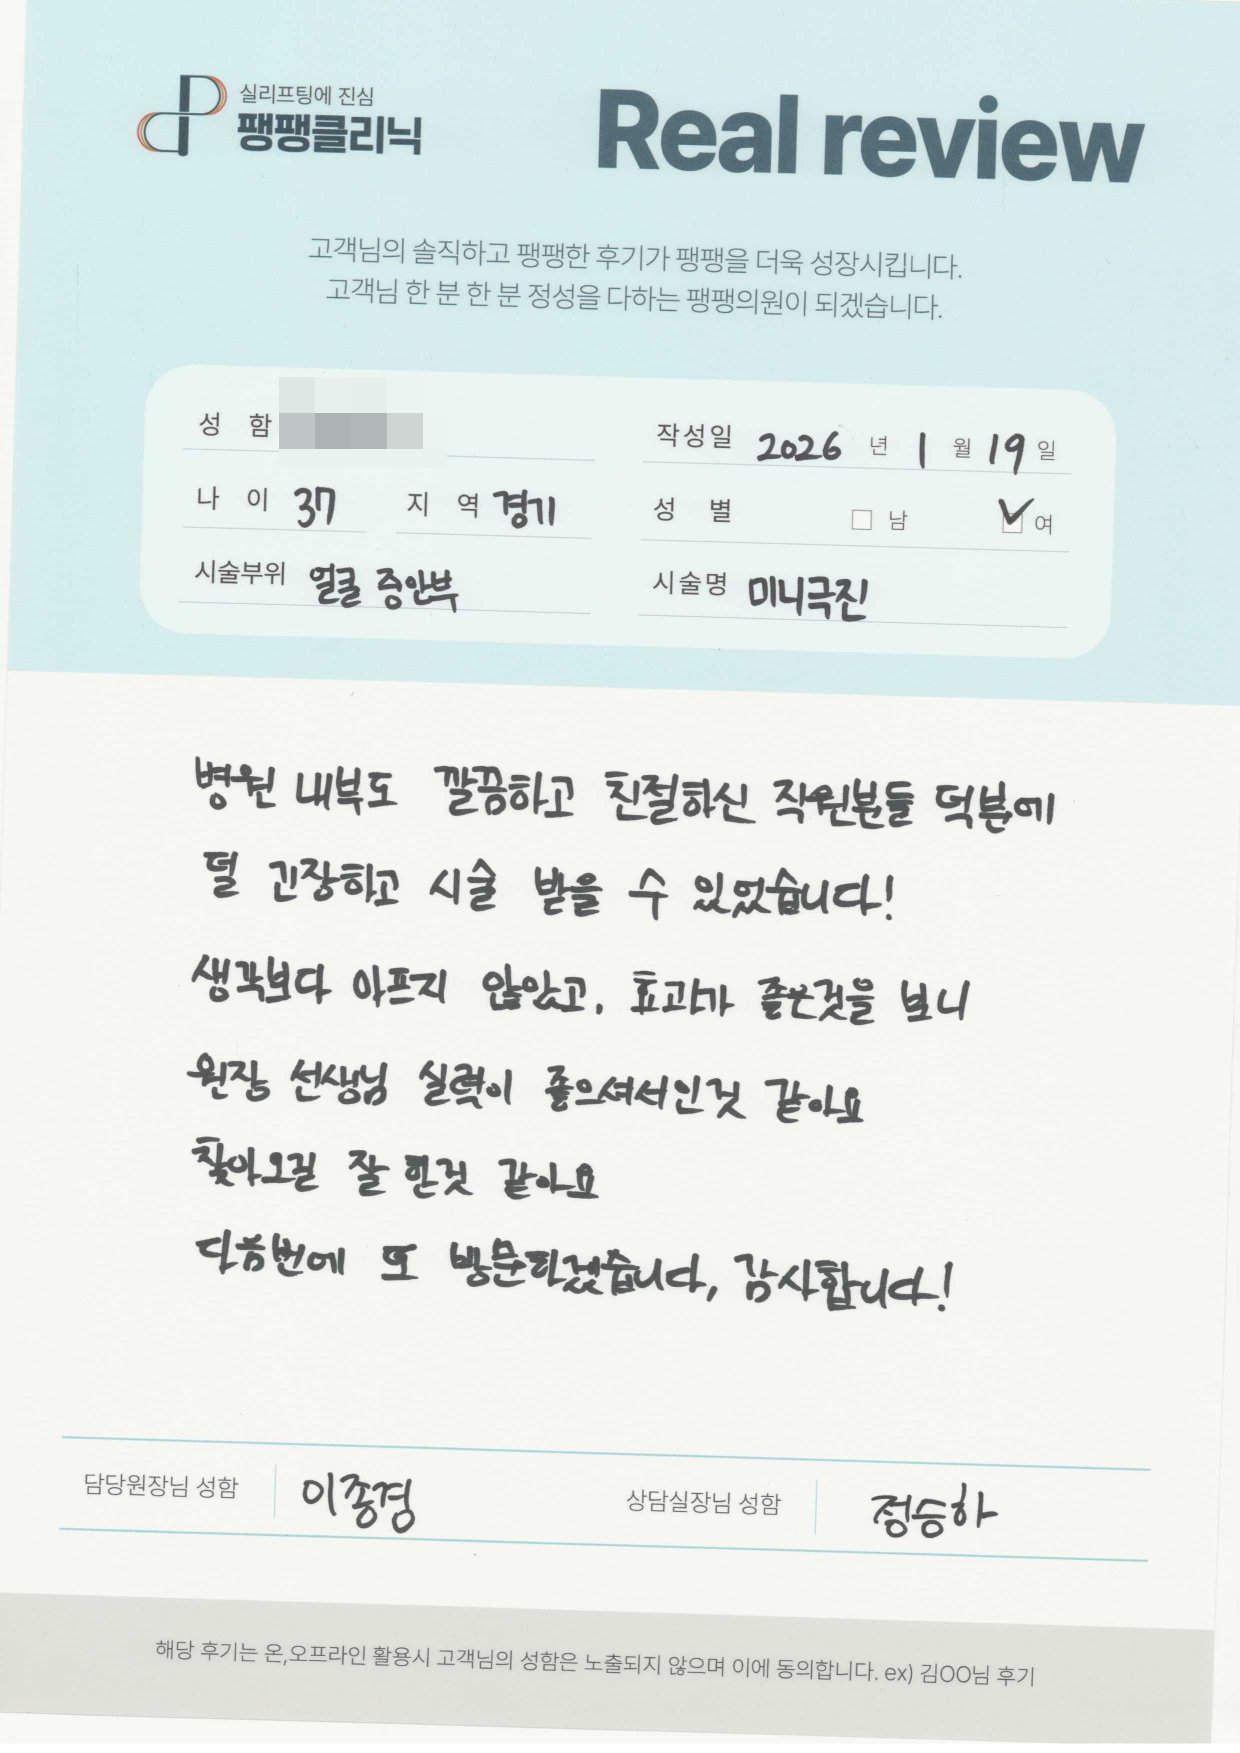 실리프팅에 진심
팽팽클리닉
Real review
고객님의 솔직하고 팽팽한 후기가 팽팽을 더욱 성장시킵니다.
고객님 한 분 한 분 정성을 다하는 팽팽의원이 되겠습니다.
성 함
작성일 2026 년 1 월 19 일
나 이 37 지 역 경기 성 별 남 여
시술부위 얼굴 중안부 시술명 미니극진
병원 내부도 깔끔하고 친절하신 직원분들 덕분에
덜 긴장하고 시술 받을 수 있었습니다!
생각보다 아프지 않았고, 효과가 좋은것을 보니
원장 선생님 실력이 좋으셔서인것 같아요
찾아오길 잘 한것 같아요
다음번에 또 방문하겠습니다, 감사합니다!
담당원장님 성함 이종경 상담실장님 성함 정승하
해당 후기는 온,오프라인 활용시 고객님의 성함은 노출되지 않으며 이에 동의합니다. ex) 김OO님 후기